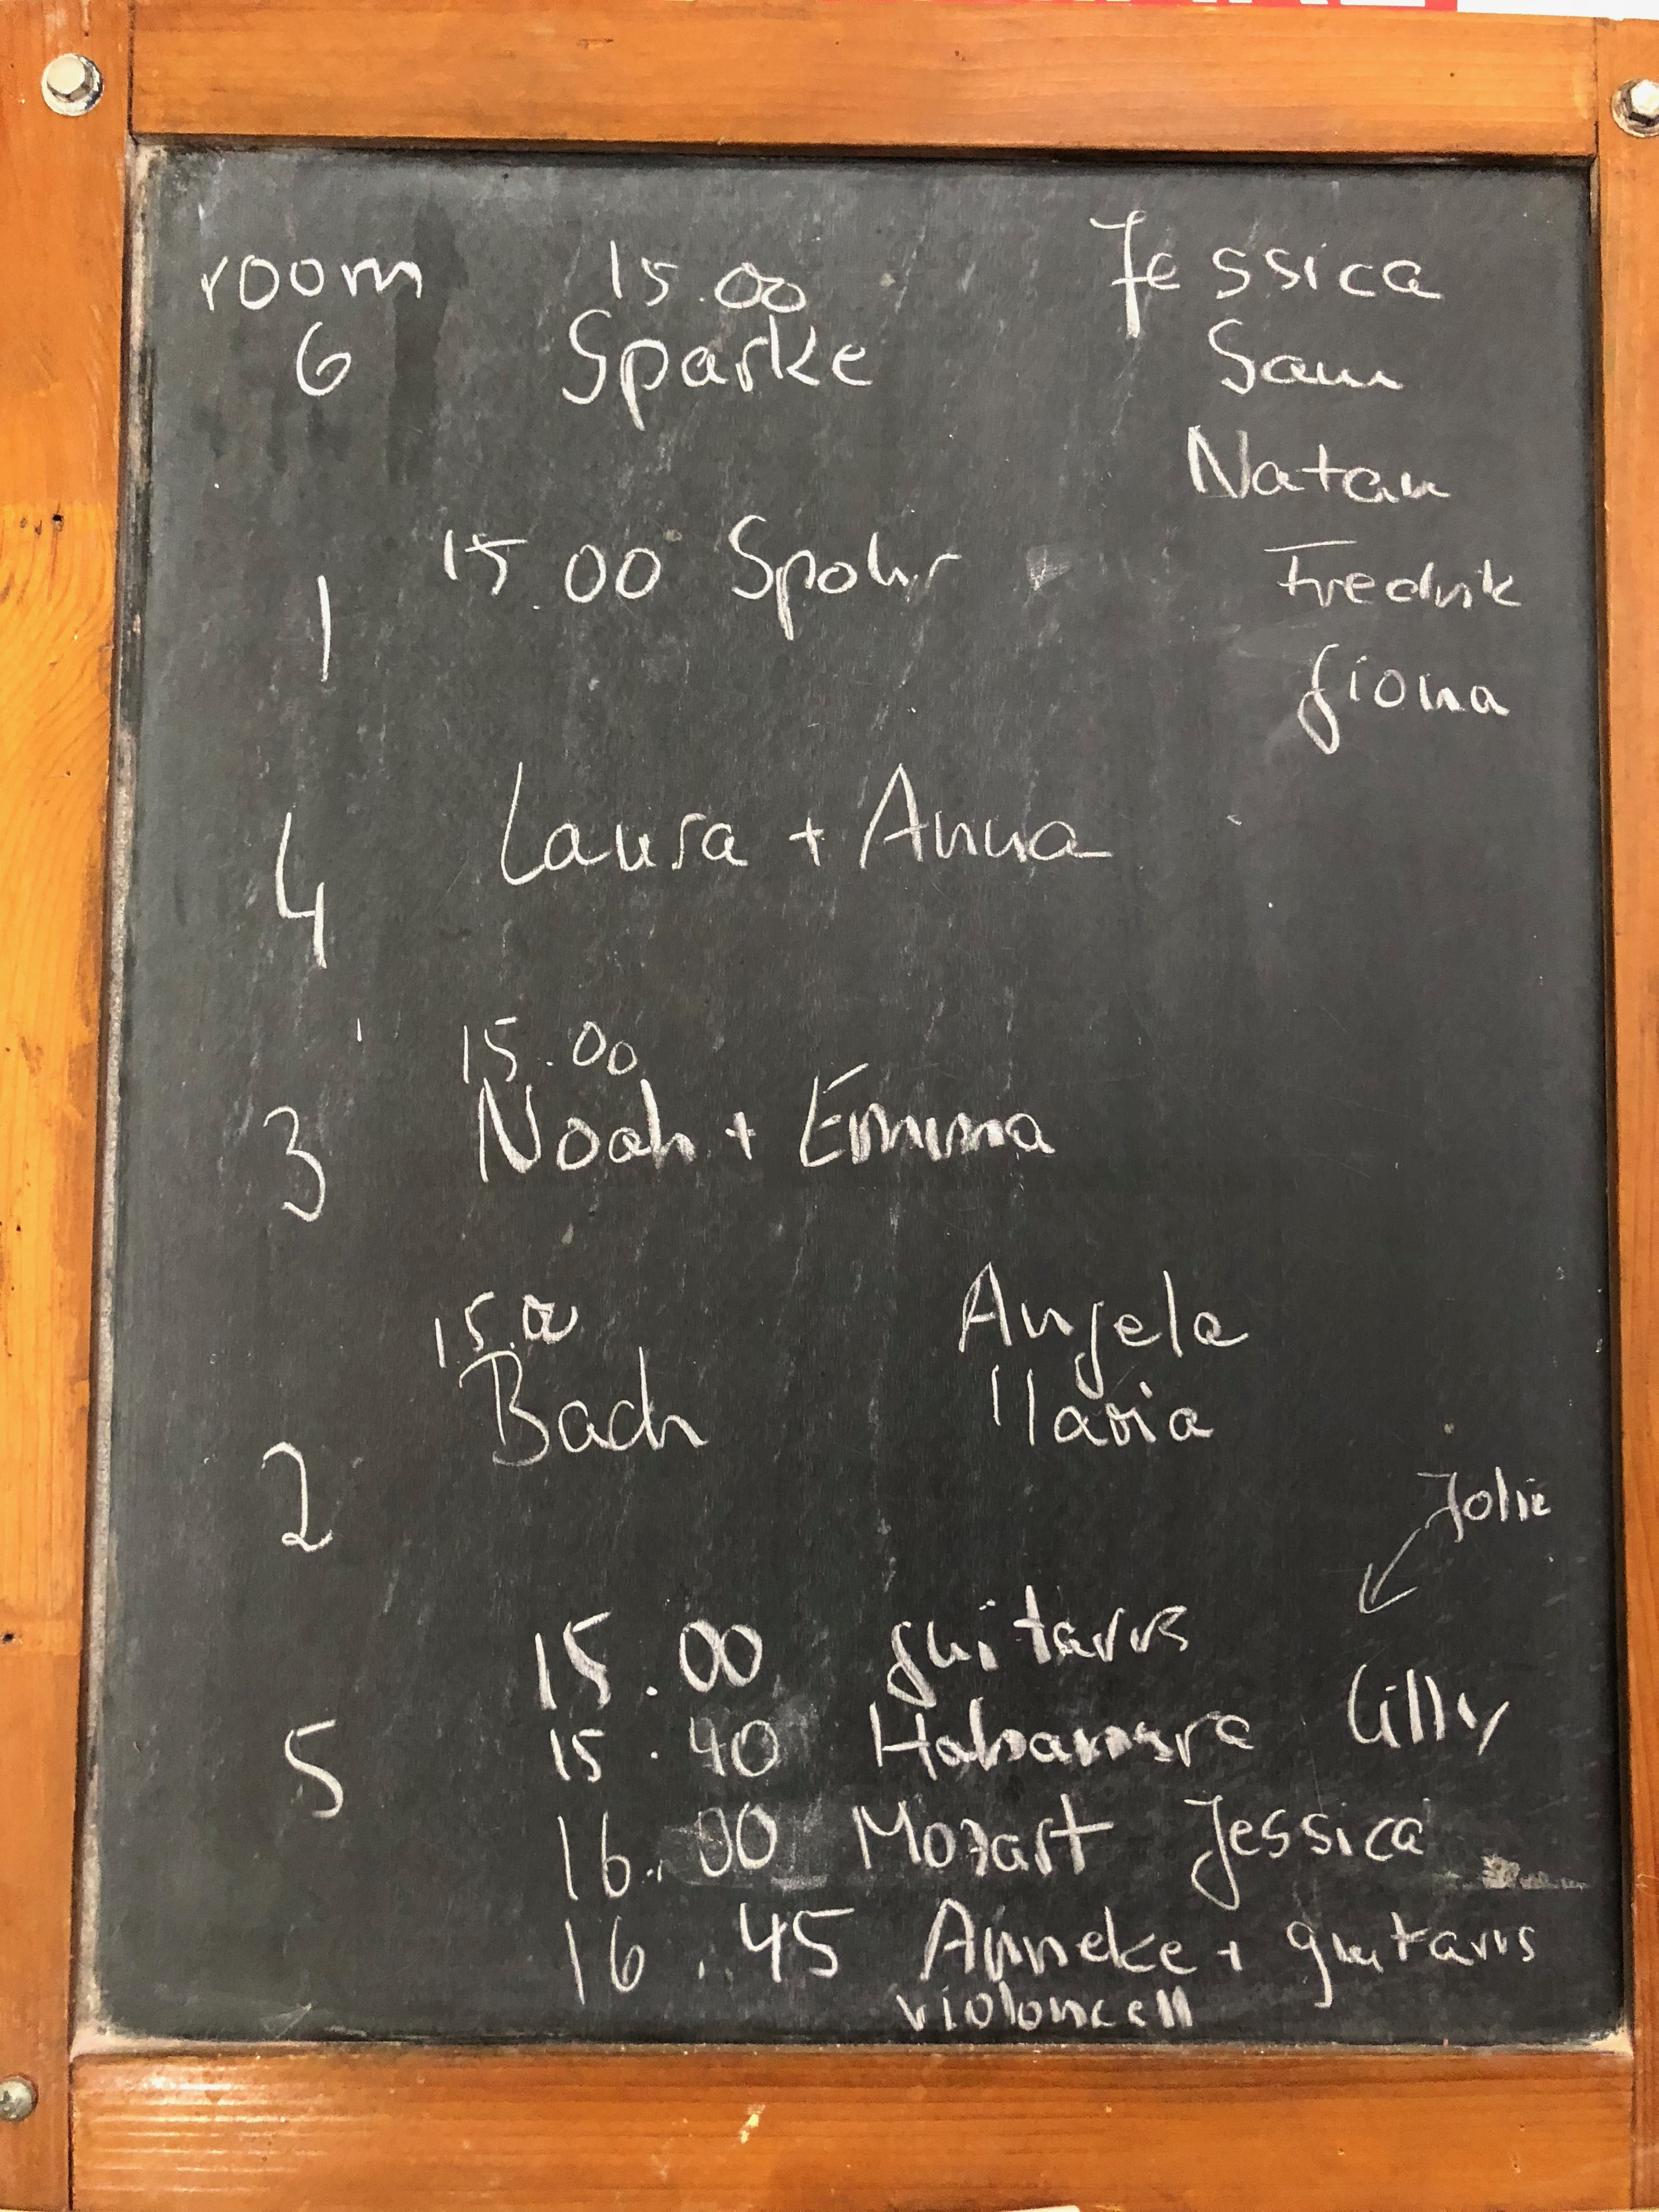 room 15.00 Jessica
6 Sparke Sam
Natan
1 15.00 Spohr Fredrik
Fiona
4 Laura + Anna
15.00
3 Noah + Emma
15.00 Angela
Bach Ilaria
2
Jolie
15.00 guitarrs
5 15.40 Habanera Lilly
16.00 Mozart Jessica
16.45 Anneke + guitarrs
violoncell